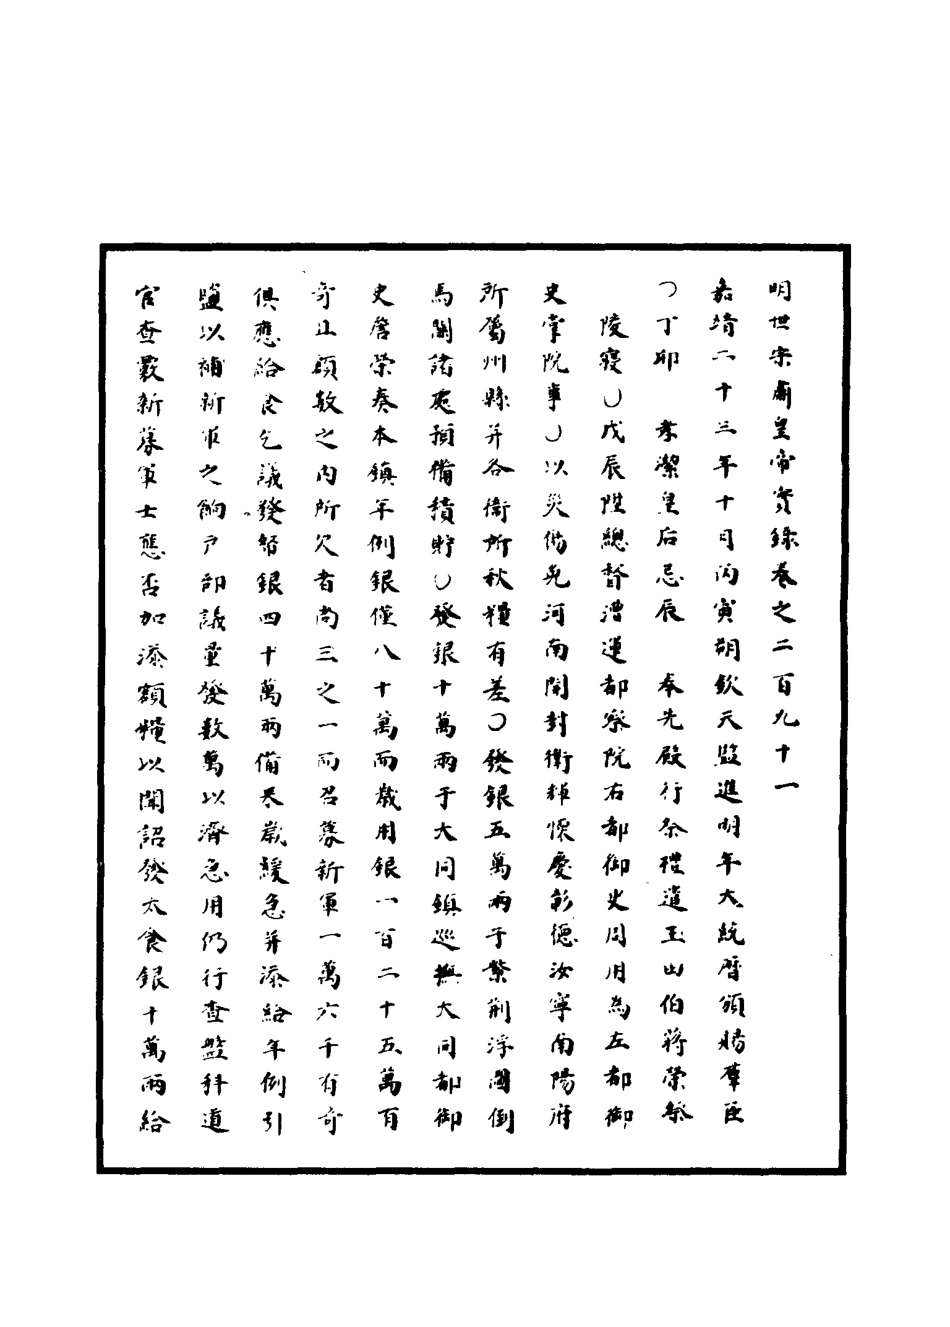 明世宗肅皇帝實錄卷之二百九十一
嘉靖二十三年十月丙寅朔欽天監進明年大統曆頒賜羣臣
○丁卯　孝潔皇后忌辰　奉先殿行祭禮遣玉山伯蔣榮祭
陵寢○戊辰陞總督漕運都察院右都御史周用為左都御
史掌院事○以災傷免河南開封衛輝懷慶彰德汝寧南陽府
所屬州縣并各衛所秋糧有差○發銀五萬兩于紫荊浮圖倒
馬關諸處預備積貯○發銀十萬兩于大同鎮巡撫大同都御
史詹榮奏本鎮年例銀僅八十萬而歲用銀一百二十五萬百
奇且額數之內所欠者尚三之一而召募新軍一萬六千有奇
俱應給食乞議發帑銀四十萬兩備來歲緩急并添給年例引
鹽以補新軍之餉户部議量發數萬以濟急用仍行查盤科道
官查覈新募軍士應否加添額糧以聞詔發太倉銀十萬兩給